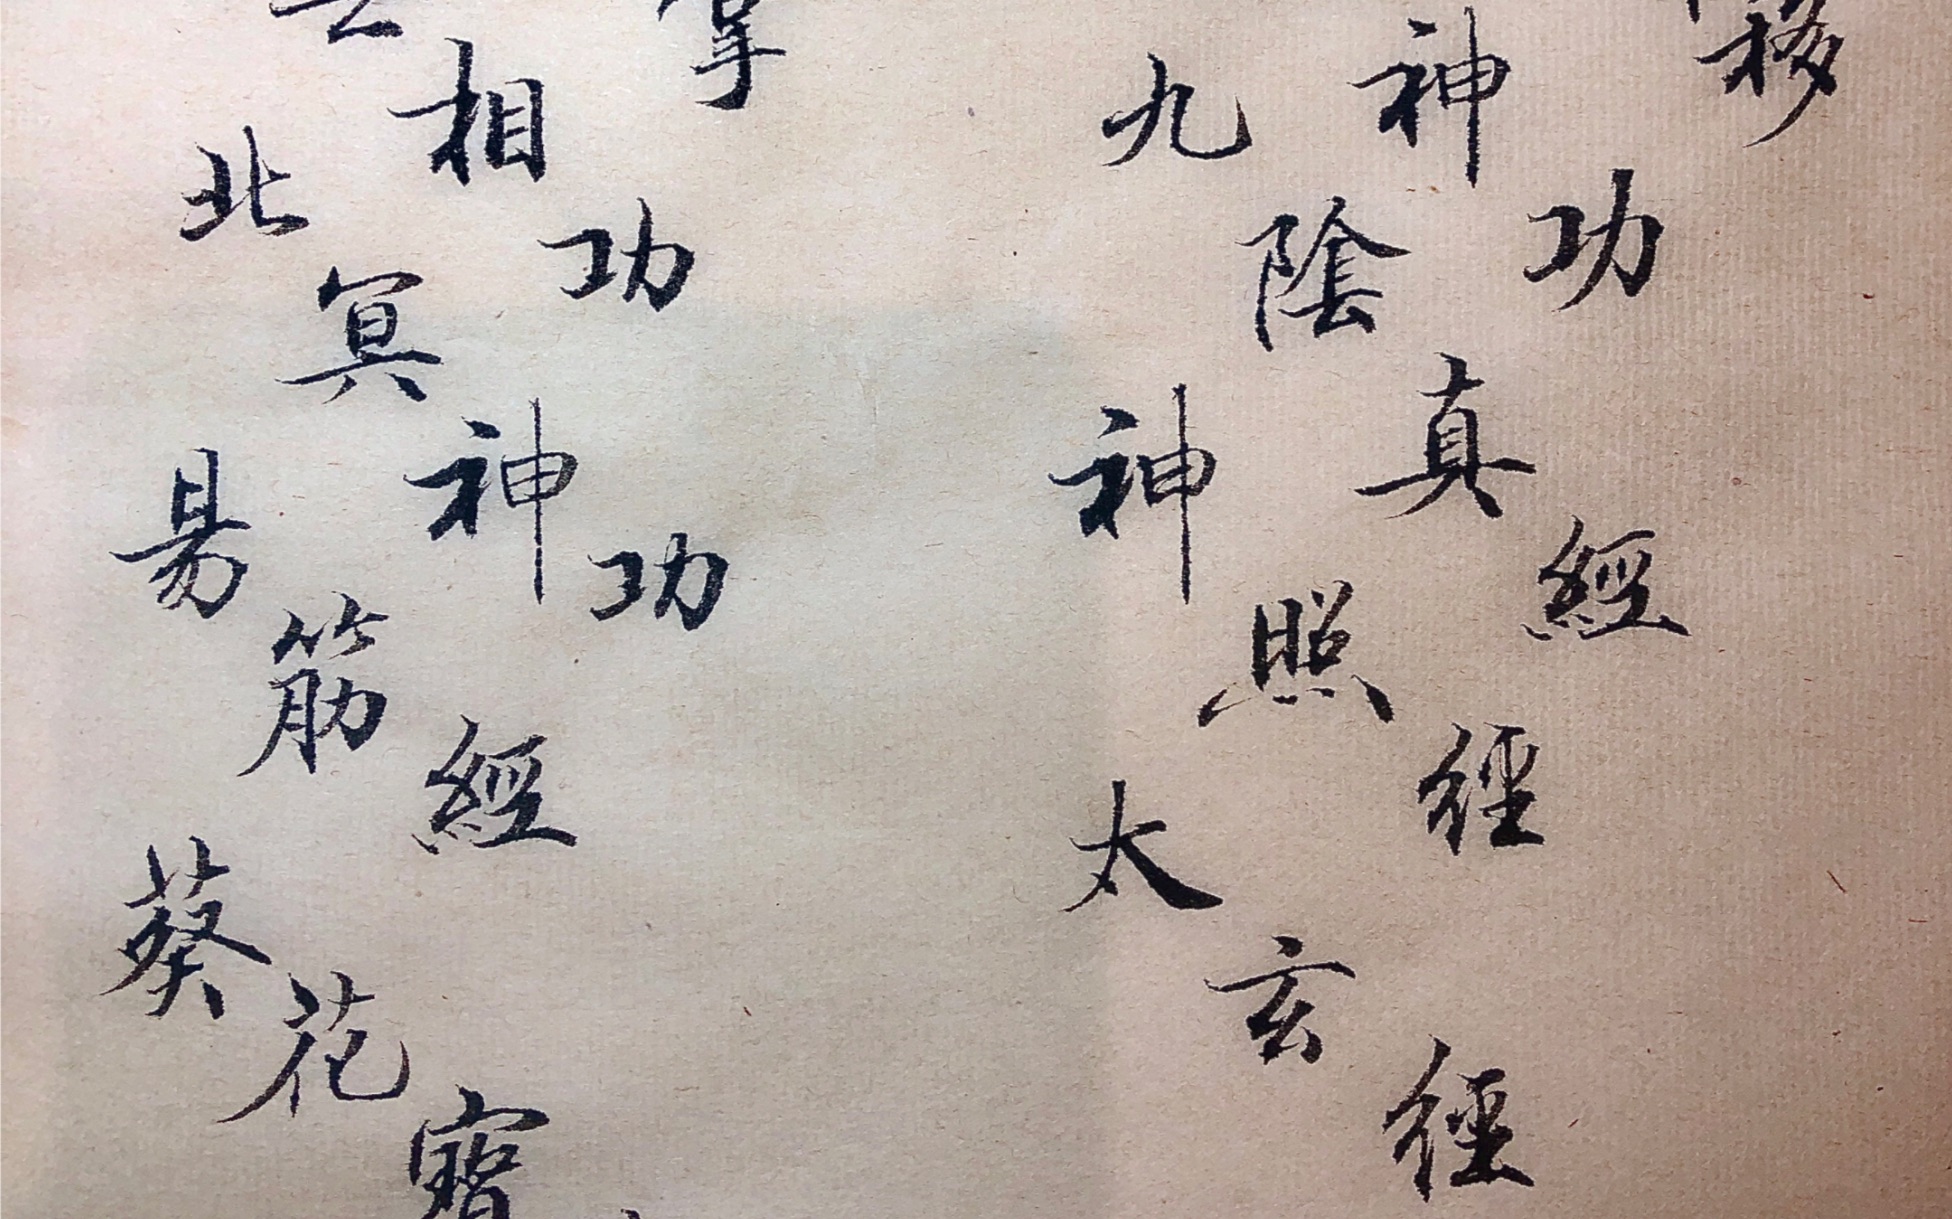 移
神功
九陰真經
神照径
太玄径
掌
相功
北冥神功
易筋經
葵花寶